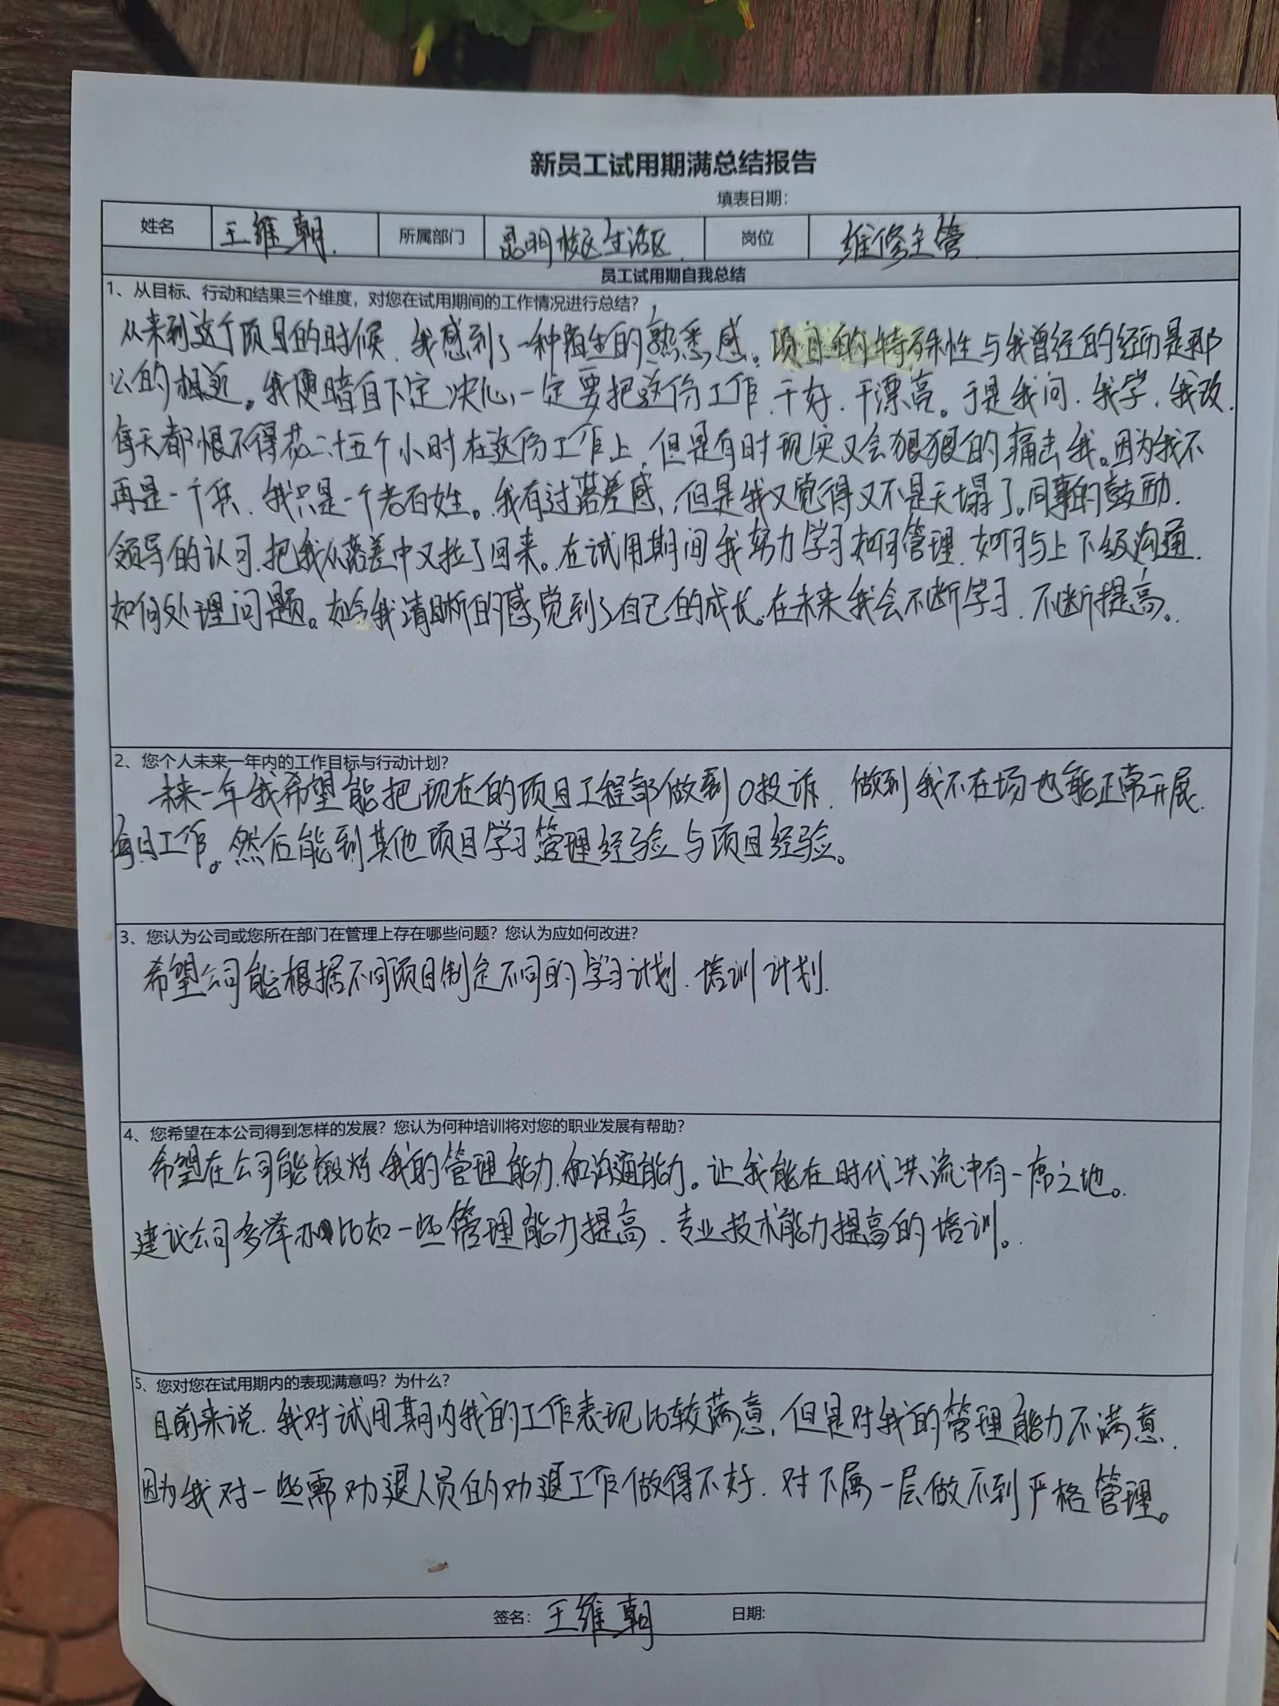 新员工试用期满总结报告
填表日期：
姓名 王维朝. 所属部门 昆明校区生活区. 岗位 维修主管.
员工试用期自我总结
1、从目标、行动和结果三个维度，对您在试用期间的工作情况进行总结？
从来到这个项目的时候、我感到了一种陌生的熟悉感。项目的特殊性与我曾经的经历是那
么的相近。我便暗自下定决心、一定要把这份工作、干好、干漂亮。于是我问、我学、我改、
每天都恨不得花二十五个小时在这份工作上、但是有时现实又会狠狠的痛击我。因为我不
再是一个兵、我只是一个老百姓。我有过落差感、但是我又觉得又不是天塌了。同事的鼓励、
领导的认可、把我从落差中又拉了回来。在试用期间我努力学习如何管理、如何与上下级沟通、
如何处理问题。如今我清晰的感觉到了自己的成长。在未来我会不断学习、不断提高。
2、您个人未来一年内的工作目标与行动计划？
未来一年我希望能把现在的项目工程部做到0投诉、做到我不在场也能正常开展
每日工作。然后能到其他项目学习管理经验与项目经验。
3、您认为公司或您所在部门在管理上存在哪些问题？您认为应如何改进？
希望公司能根据不同项目制定不同的学习计划、培训计划.
4、您希望在本公司得到怎样的发展？您认为何种培训将对您的职业发展有帮助？
希望在公司能锻炼我的管理能力、和沟通能力。让我能在时代洪流中有一席之地。
建议公司多举办比如一些管理能力提高、专业技术能力提高的培训。
5、您对您在试用期内的表现满意吗？为什么？
目前来说、我对试用期内我的工作表现比较满意、但是对我的管理能力不满意、
因为我对一些需劝退人员的劝退工作做得不好、对下属一层做不到严格管理。
签名： 王维朝 日期: